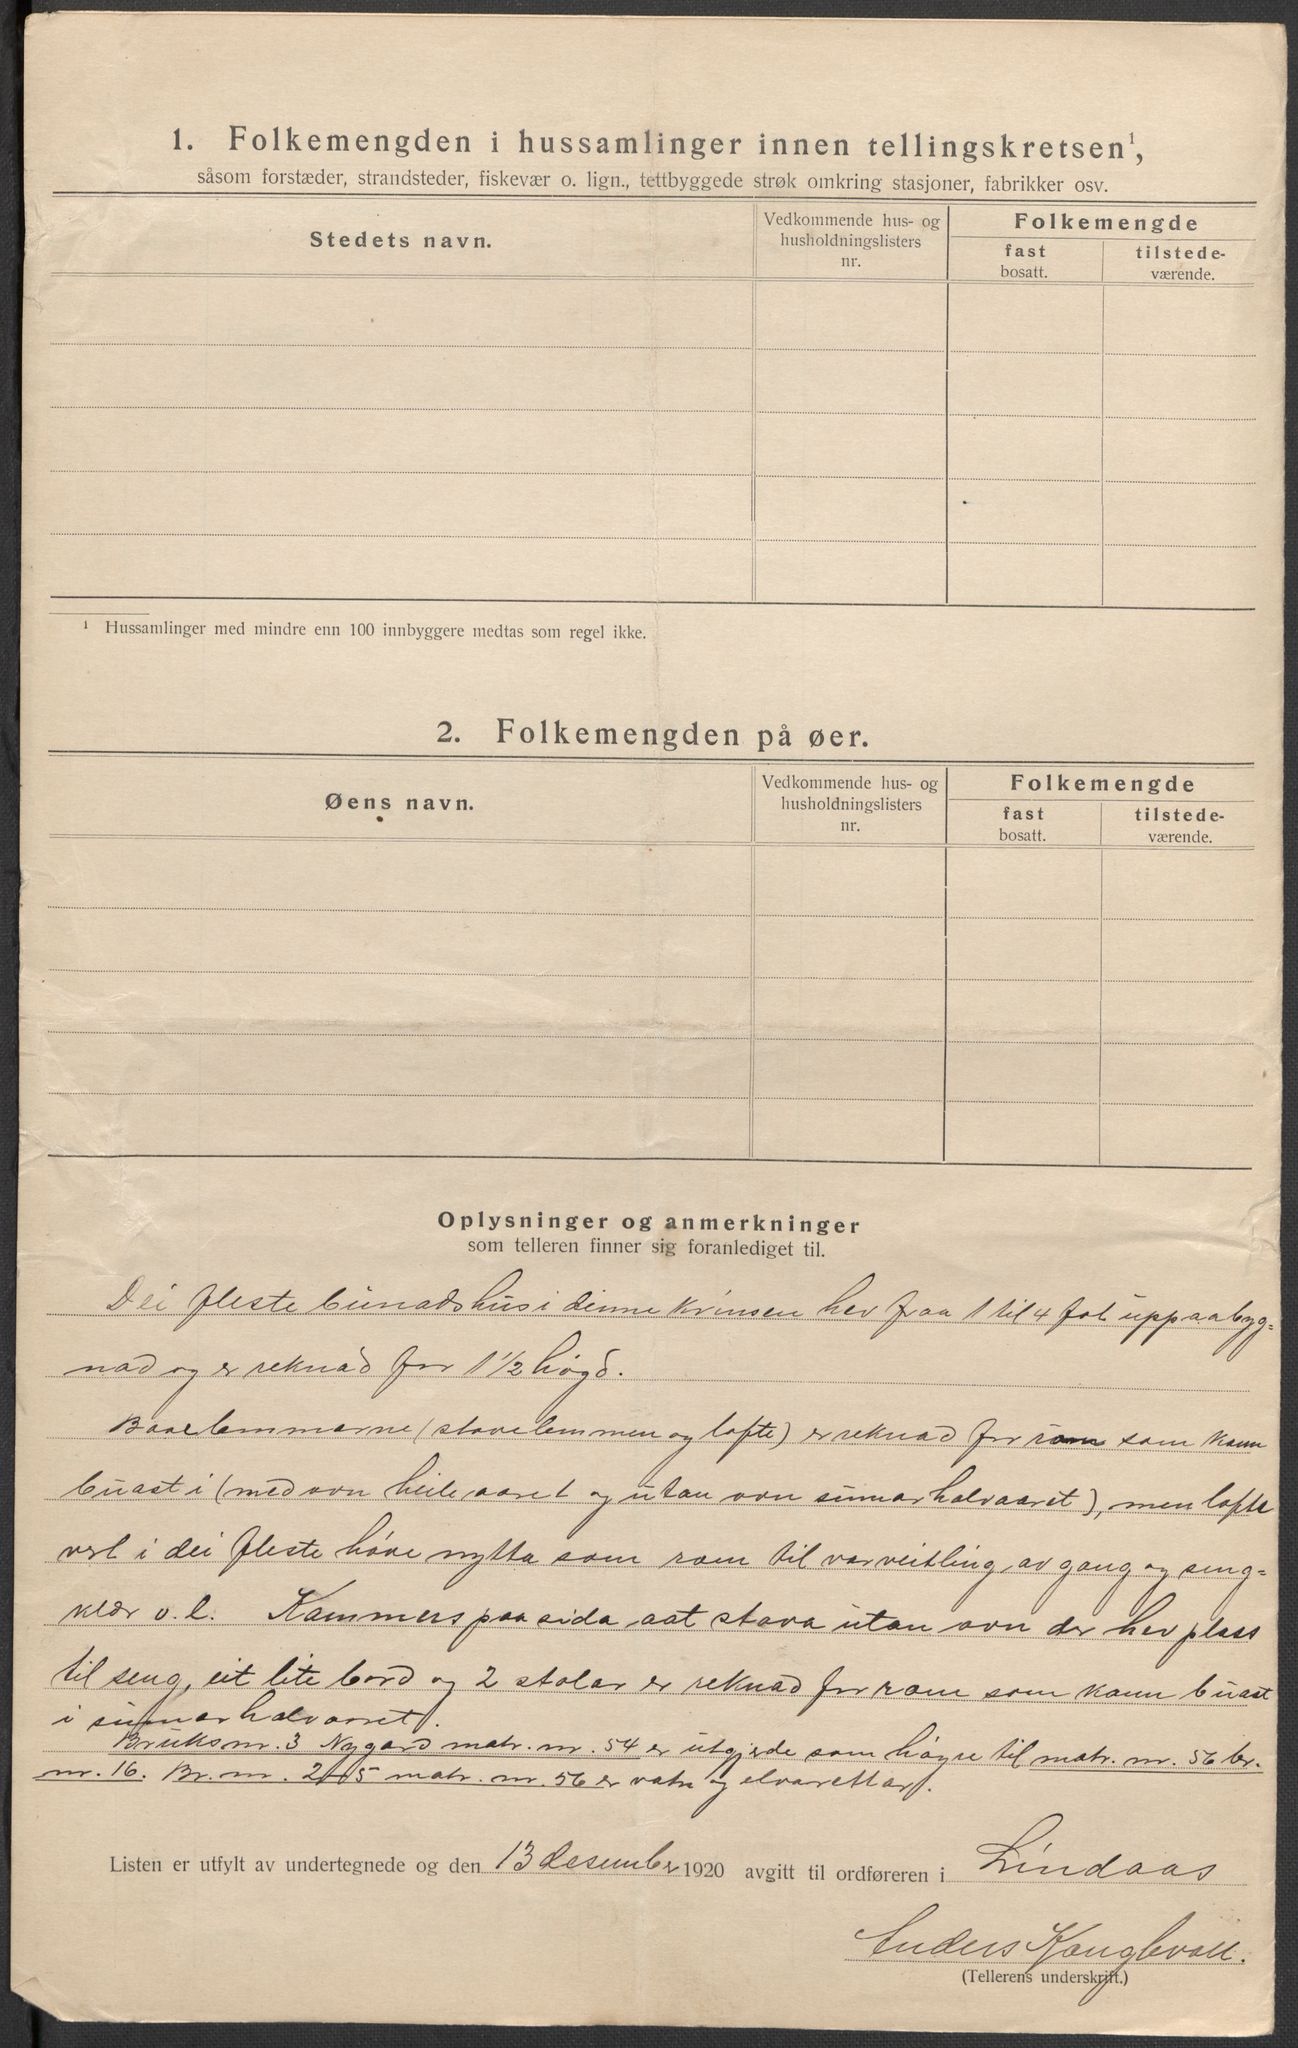 1. Folkemengden i hussamlinger innen tellingskretsen¹,
såsom forstæder, strandsteder, fiskevær o. lign., tettbyggede strøk omkring stasjoner, fabrikker osv.
Stedets navn.
Vedkommende hus- og
husholdningslisters
nr.
Folkemengde
fast
bosatt.
tilstede-
værende.
¹ Hussamlinger med mindre enn 100 innbyggere medtas som regel ikke.
2. Folkemengden på øer.
Øens navn.
Vedkommende hus- og
husholdningslisters
nr.
Folkemengde
fast
bosatt.
tilstede-
værende.
Oplysninger og anmerkninger
som telleren finner sig foranlediget til.
Dei fleste bunadshus i denne krinsen hev fraa 1 til 4 fot uppaabyg=
nad og er reknad for 1 1/2 høgd.
(stovelemmen og lofte) er reknad for rom som kann
buast i (med ovn heile aaret og utan ovn sumarhalvaaret), men lofte
vert i dei fleste høve nytta som rom til varveitling av gang og seng=
klær o.l. Kammers paa sida aat stova utan ovn der hev plass
til seng, eit lite bord og 2 stolar er reknad for rom som kann buast
i sumarhalvaaret.
Bruksnr. 3 Nygard matr. nr. 54 er utgjerde som høyre til matr. nr. 56 br.
nr. 16. Br. nr. 2 15 matr. nr. 56 er vatn og elvarettar.
Listen er utfylt av undertegnede og den 13 desember 1920 avgitt til ordføreren i Lindaas
Anders Konglevoll.
(Tellerens underskrift.)